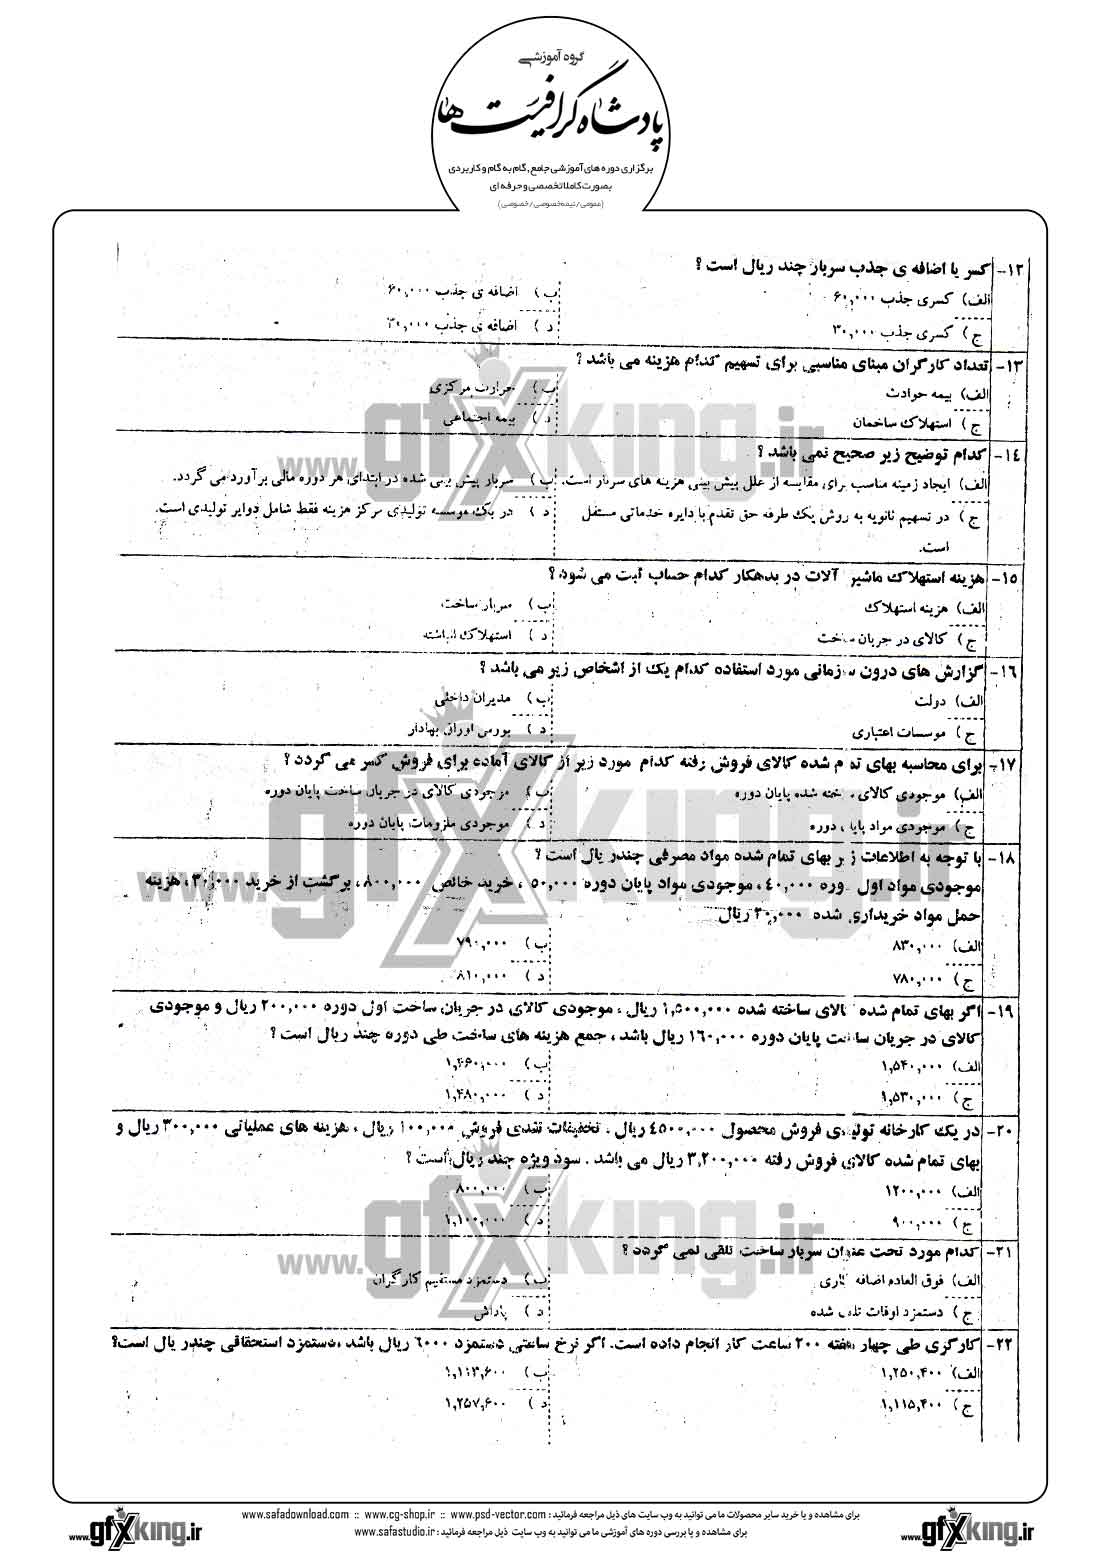 گروه آموزشی
پادشاه گرافیست ها
برگزاری دوره های آموزشی جامع، گام به گام و کاربردی
بصورت کاملا تخصصی و حرفه ای
(عمومی/نیمه‌خصوصی/خصوصی)
۱۲- کسر یا اضافه ی جذب سربار چند ریال است ؟
الف) کسری جذب ۶۰,۰۰۰ ب) اضافه ی جذب ۶۰,۰۰۰
ج) کسری جذب ۳۰,۰۰۰ د) اضافه ی جذب ۳۰,۰۰۰
۱۳- تعداد کارگران مبنای مناسبی برای تسهیم کدام هزینه می باشد ؟
الف) بیمه حوادث ب) حرارت مرکزی
ج) استهلاک ساختمان د) بیمه اجتماعی
۱۴- کدام توضیح زیر صحیح نمی باشد ؟
الف) ایجاد زمینه مناسب برای مقایسه از علل پیش بینی هزینه های سربار است. ب) سربار پیش بینی شده در ابتدای هر دوره مالی برآورد می گردد.
ج) در تسهیم ثانویه به روش یک طرفه حق تقدم با دایره خدماتی مستقل د) در یک موسسه تولیدی مرکز هزینه فقط شامل دوایر تولیدی است.
است.
۱۵- هزینه استهلاک ماشین آلات در بدهکار کدام حساب ثبت می شود ؟
الف) هزینه استهلاک ب) سربار ساخت
ج) کالای در جریان ساخت د) استهلاک انباشته
۱۶- گزارش های درون سازمانی مورد استفاده کدام یک از اشخاص زیر می باشد ؟
الف) دولت ب) مدیران داخلی
ج) موسسات اعتباری د) بورس اوراق بهادار
۱۷- برای محاسبه بهای تمام شده کالای فروش رفته کدام مورد زیر از کالای آماده برای فروش کسر می گردد ؟
الف) موجودی کالای ساخته شده پایان دوره ب) موجودی کالای در جریان ساخت پایان دوره
ج) موجودی مواد پایان دوره د) موجودی ملزومات پایان دوره
۱۸- با توجه به اطلاعات زیر بهای تمام شده مواد مصرفی چندریال است ؟
موجودی مواد اول دوره ۴۰,۰۰۰ ، موجودی مواد پایان دوره ۵۰,۰۰۰ ، خرید خالص ۸۰۰,۰۰۰ ، برگشت از خرید ۳۰,۰۰۰ ، هزینه
حمل مواد خریداری شده ۲۰,۰۰۰ ریال
الف) ۸۳۰,۰۰۰ ب) ۷۹۰,۰۰۰
ج) ۷۸۰,۰۰۰ د) ۸۱۰,۰۰۰
۱۹- اگر بهای تمام شده کالای ساخته شده ۱,۵۰۰,۰۰۰ ریال ، موجودی کالای در جریان ساخت اول دوره ۲۰۰,۰۰۰ ریال و موجودی
کالای در جریان ساخت پایان دوره ۱۶۰,۰۰۰ ریال باشد ، جمع هزینه های ساخت طی دوره چند ریال است ؟
الف) ۱,۵۴۰,۰۰۰ ب) ۱,۴۶۰,۰۰۰
ج) ۱,۵۳۰,۰۰۰ د) ۱,۴۸۰,۰۰۰
۲۰- در یک کارخانه تولیدی فروش محصول ۴۵۰۰,۰۰۰ ریال ، تخفیفات نقدی فروش ۱۰۰,۰۰۰ ریال ، هزینه های عملیاتی ۳۰۰,۰۰۰ ریال و
بهای تمام شده کالای فروش رفته ۳,۲۰۰,۰۰۰ ریال می باشد . سود ویژه چند ریال است ؟
الف) ۱۲۰۰,۰۰۰ ب) ۸۰۰,۰۰۰
ج) ۹۰۰,۰۰۰ د) ۱,۱۰۰,۰۰۰
۲۱- کدام مورد تحت عنوان سربار ساخت تلقی نمی گردد ؟
الف) فوق العاده اضافه کاری ب) دستمزد مستقیم کارگران
ج) دستمزد اوقات تلف شده د) پاداش
۲۲- کارگری طی چهار هفته ۲۰۰ ساعت کار انجام داده است. اگر نرخ ساعتی دستمزد ۶۰۰۰ ریال باشد ،دستمزد استحقاقی چندریال است؟
الف) ۱,۲۵۰,۴۰۰ ب) ۱,۱۱۳,۶۰۰
ج) ۱,۱۱۵,۴۰۰ د) ۱,۲۵۷,۶۰۰
www.gfxking.ir
www.gfxking.ir
www.gfxking.ir
برای مشاهده و یا خرید سایر محصولات ما می توانید به وب سایت های ذیل مراجعه فرمائید : www.safadownload.com :: www.cg-shop.ir :: www.psd-vector.com
برای مشاهده و یا بررسی دوره های آموزشی ما می توانید به وب سایت ذیل مراجعه فرمائید : www.safastudio.ir
www.gfxking.ir
www.gfxking.ir